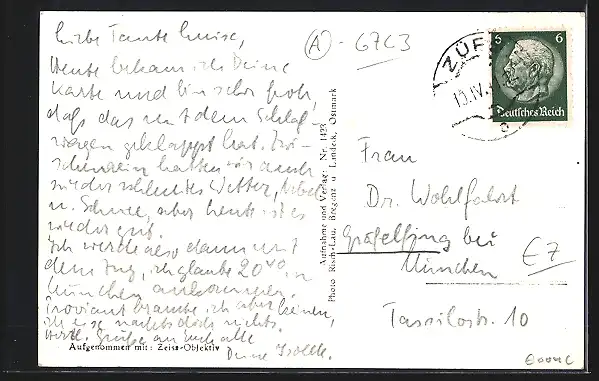 Liebe Tante Luise,
Heute bekam ich Deine
Karte und bin sehr froh,
daß das mit dem Schlaf
wagen geklappt hat. Zwi-
schenrein hatten wir auch
wieder schlechtes Wetter, Nebel
u. Schnee, aber heute ist es
wieder gut.
Ich werde also dann mit
dem Zug, ich glaube 20 40, in
München ankommen.
Proviant brauche ich aber keinen,
ich esse nachts doch nichts.
Herzl. Grüße an Euch alle
Deine
Aufgenommen mit: Zeiss-Objektiv
Photo Risch-Lau, Bregenz u. Lindeck, Ostmark
Aufnahme und Verlag: Nr. 1423
A - 67C3
ZÜR
10.IV.
6
Deutsches Reich
Frau
Dr. Wohlfahrt
Gräfelfing bei
München
E7
Tassilostr. 10